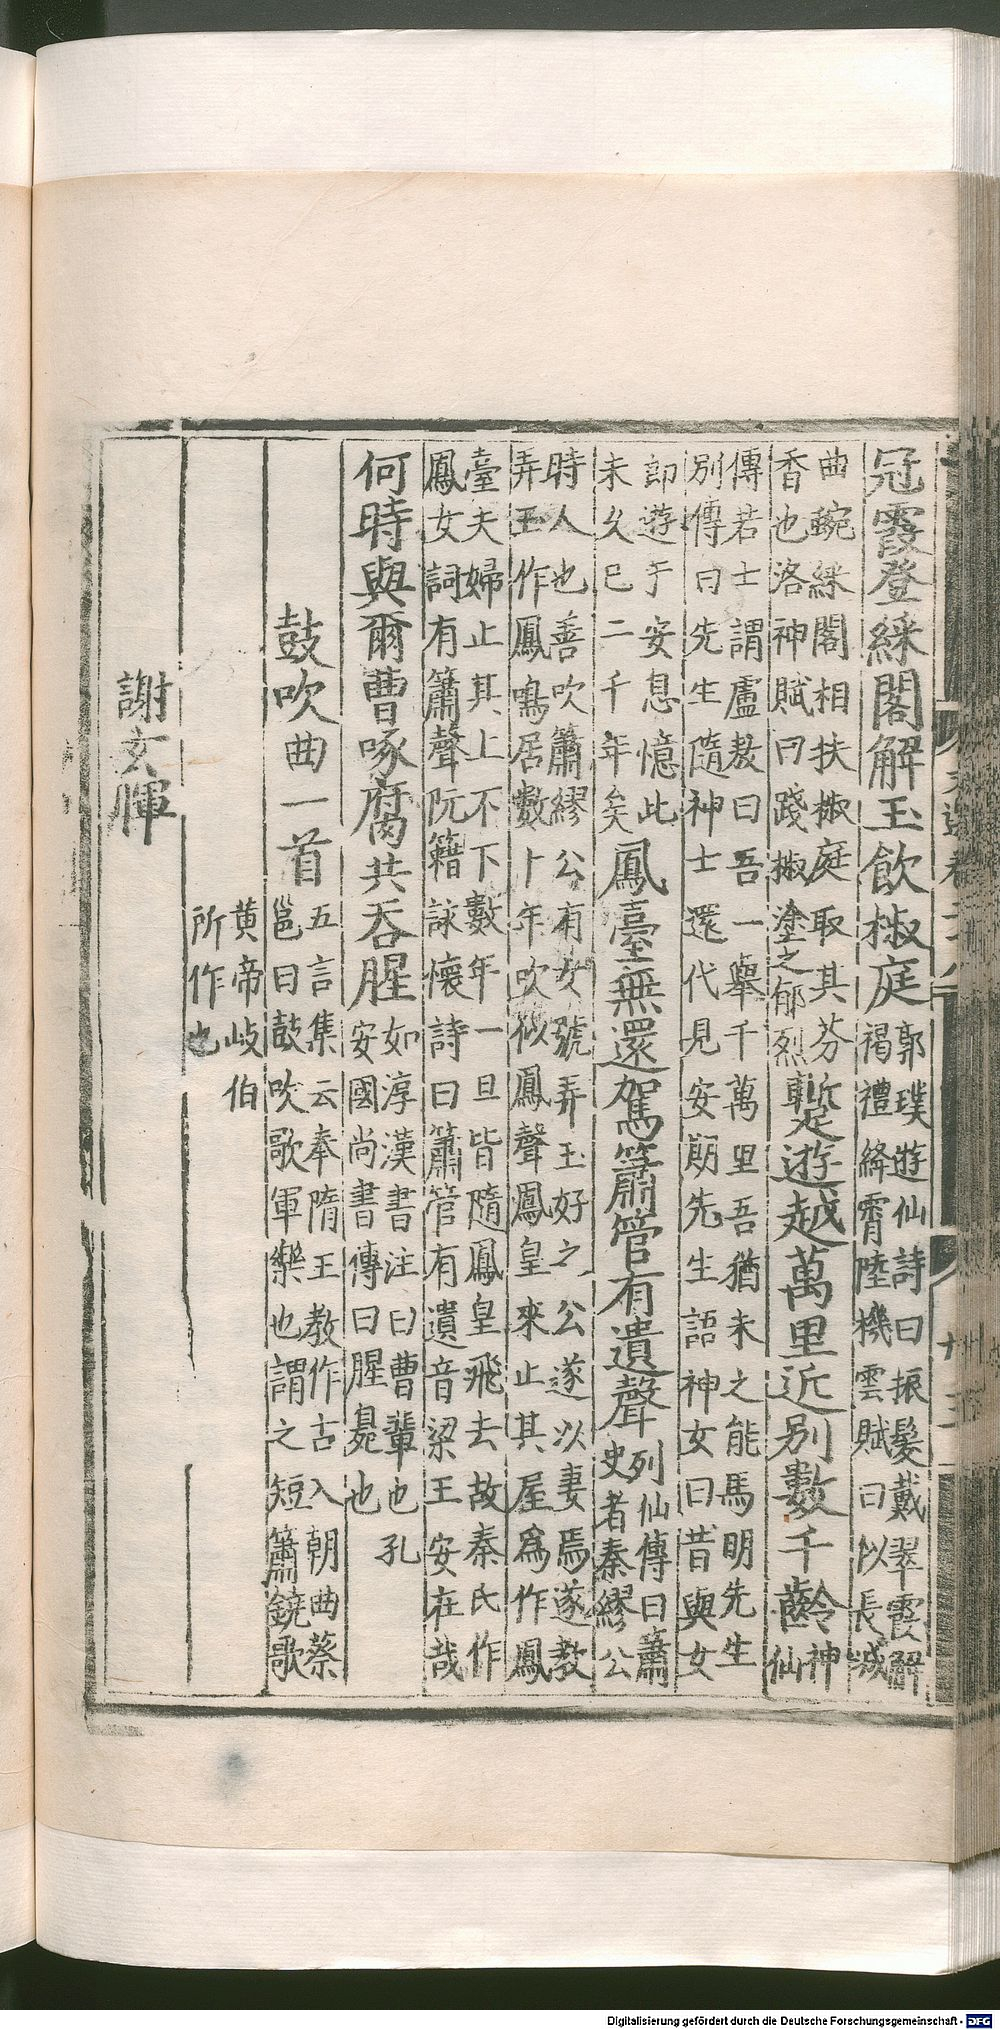 冠霞登綵閣解玉飲椒庭
郭璞遊仙詩曰振髮戴翠霞解
褐禮絳霄陸機雲賦曰似長城
曲蜿綵閣相扶椒庭取其芬
香也洛神賦曰踐椒塗之郁烈
蹔遊越萬里近別數千齡
神
仙
傳若士謂盧敖曰吾一舉千萬里吾猶未之能馬明先生
別傳曰先生隨神士還代見安期先生語神女曰昔與女
郎遊于安息憶此
未久巳二千年矣
鳳臺無還駕簫管有遺聲
列仙傳曰簫
史者秦繆公
時人也善吹簫繆公有女號弄玉好之公遂以妻焉遂教
弄玉作鳳鳴居數十年吹似鳳聲鳳皇來止其屋爲作鳳
臺夫婦止其上不下數年一旦皆隨鳳皇飛去故秦氏作
鳳女詞有簫聲阮籍詠懷詩曰簫管有遺音梁王安在哉
何時與爾曹啄腐共吞腥
如淳漢書注曰曹輩也孔
安國尚書傳曰腥臭也
鼓吹曲一首
五言集云奉隋王教作古入朝曲蔡
邕曰鼓吹歌軍樂也謂之短簫鐃歌
黄帝岐伯
所作也
謝玄暉
Digitalisierung gefördert durch die Deutsche Forschungsgemeinschaft - DFG